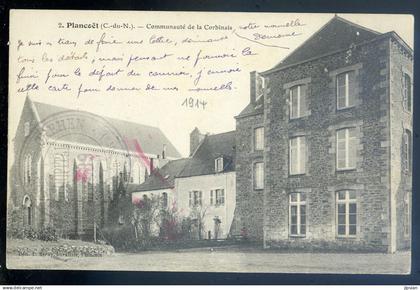 2. Plancoët (C.-du-N.) — Communauté de la Corbinais
notre nouvelle
demeure
Je suis en train de faire une lettre, dans
tous les détails, mais pensant ne pouvoir la
finir pour le départ du courrier, j'envoie
cette carte pour donner de mes nouvelles.
1914